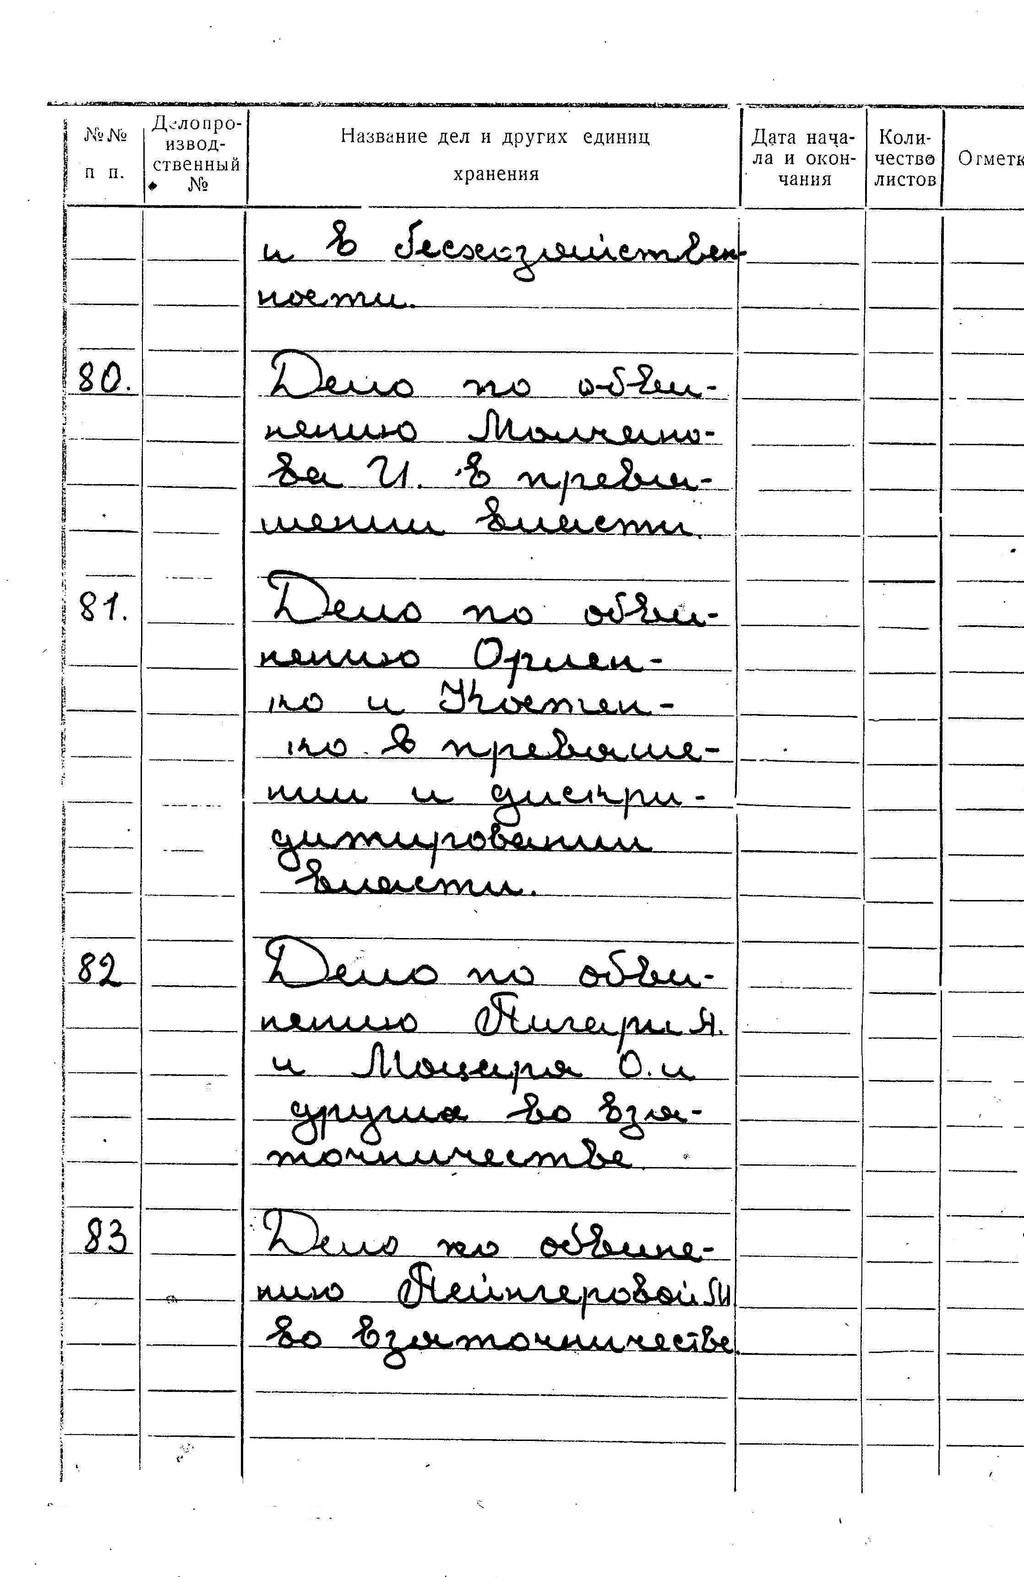 №№ п п.
Делопро-
извод-
ственный
№
Название дел и других единиц
хранения
Дата нача-
ла и окон-
чания
Коли-
чество
листов
Отметк
и в бесхозяйствен-
ности.
80. Дело по обви-
нению Молчано-
ва И. в превы-
шении власти.
81. Дело по обви-
нению Орлен-
ко и Костен-
ко в превыше-
нии и дискри-
дитировании
власти.
82 Дело по обви-
нению Я.
и Моцаря О. и
других во взя-
точничестве.
83 Дело по обвине-
нию М
во взяточничестве.